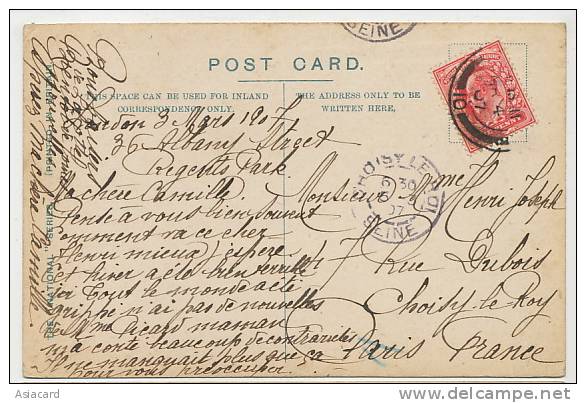 SEINE
POST CARD.
THIS SPACE CAN BE USED FOR INLAND
CORRESPONDENCE ONLY.
THE ADDRESS ONLY TO BE
WRITTEN HERE.
THE "NATIONAL" SERIES
London 3 Mars 1907
36 Albany Street
Regents Park
Ma chère Camille
Pense à vous bien souvent
Comment va ce cher
Henri mieux j'espère
et l'hiver a été bien terrible
ici Tout le monde a été
grippé n'ai pas de nouvelles
de Mme Picard maman
m'a conté beaucoup de contrariétés
Il ne manquait plus que ça
pour vous préoccuper.
Monsieur Mme
Henri Joseph
7 Rue Dubois
Choisy le Roy
Paris France
CHOISY LE ROI
SEINE
Asiacard
delcampe.net